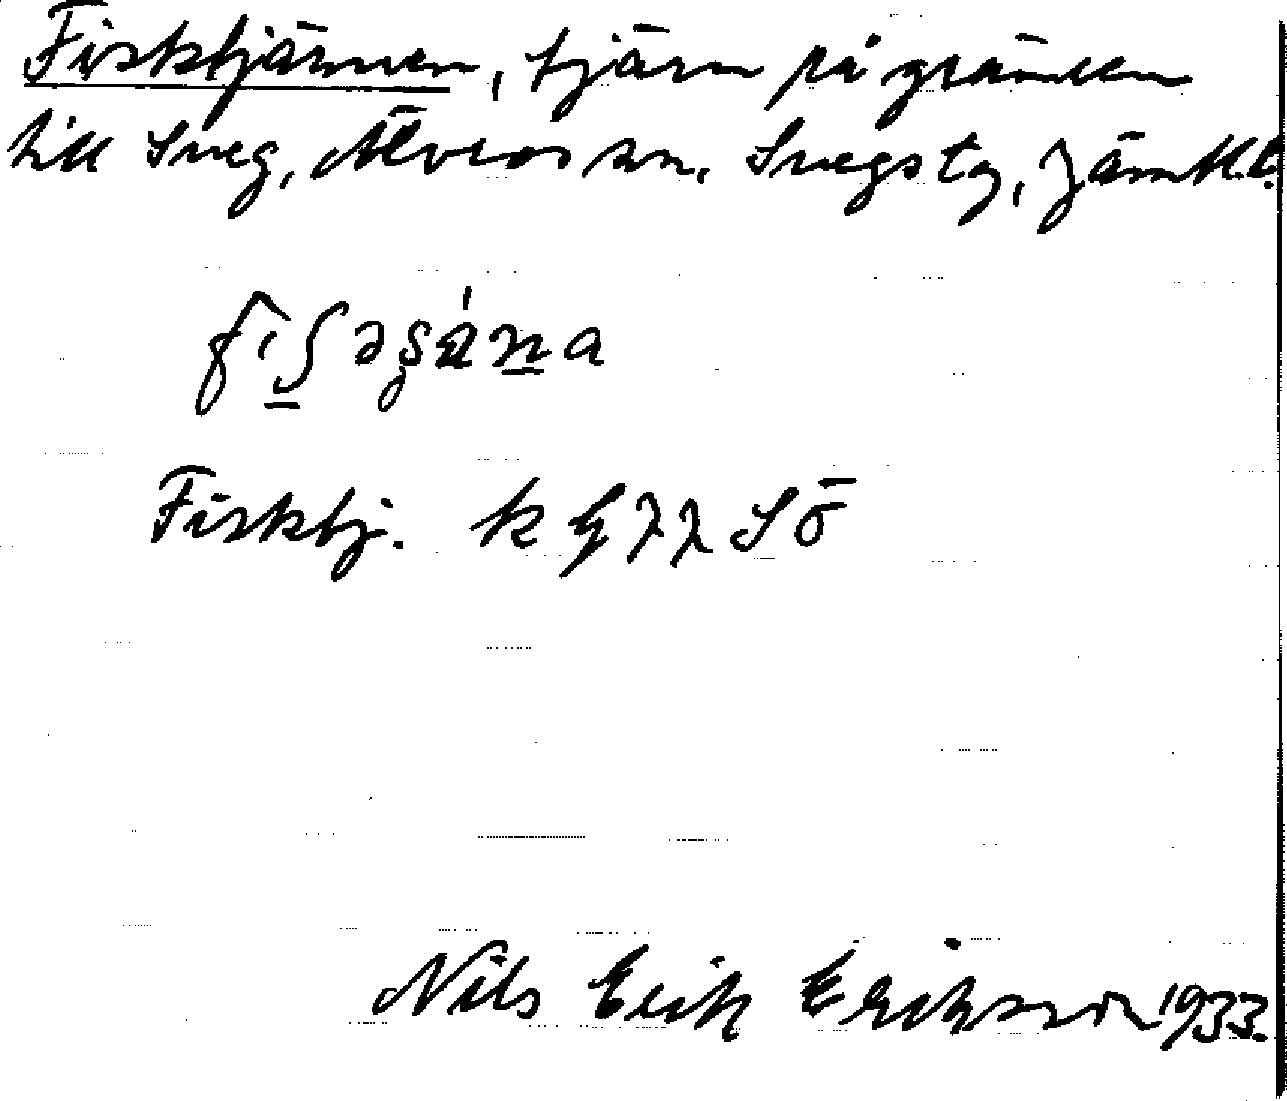 Fisktjärnen, tjärn på gränsen
till Sveg, Älvros sn. Svegs tg, Jämtl. l.
Fisktj.
Nils Erik Eriksson 1933.